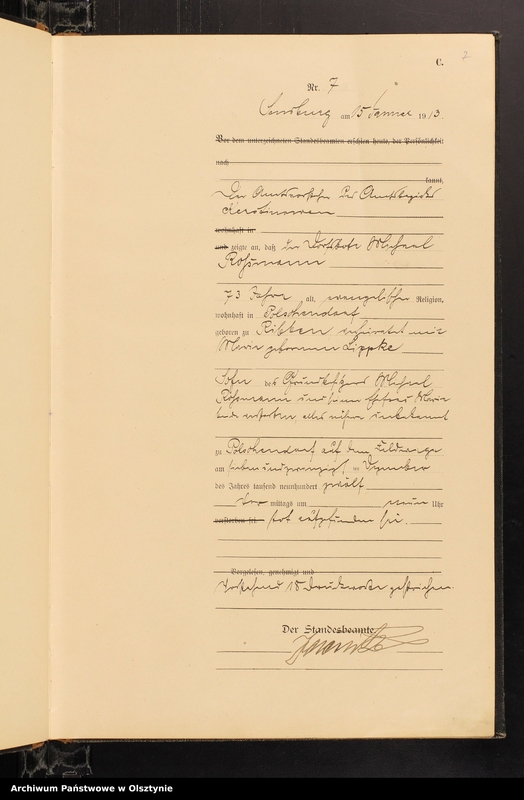 C.
7
Nr. 7
Sensburg am 15 Januar 1913.
Vor dem unterzeichneten Standesbeamten erschien heute, der Persönlichkeit
nach
kannt,
Der Amtsvorsteher des Amtsbezirks
wohnhaft in
und zeigte an, daß der Ortsarme Michael
Roßmann
73 Jahre alt, evangelischer Religion,
wohnhaft in Polschendorf
geboren zu Ribben verheiratet mit
Marie geborenen Lippke
Sohn des Grundbesitzers Michael
Roßmann und seiner Ehefrau Marie
beide verstorben, alles nähere unbekannt
zu Polschendorf auf dem Feldwege
am sieben und zwanzigsten Dezember
des Jahres tausend neunhundert zwölf
Vor mittags um neun Uhr
verstorben sei tot aufgefunden sei.
Vorgelesen, genehmigt und
Vorstehend 18 Druckworte gestrichen.
Der Standesbeamte.
Archiwum Państwowe w Olsztynie